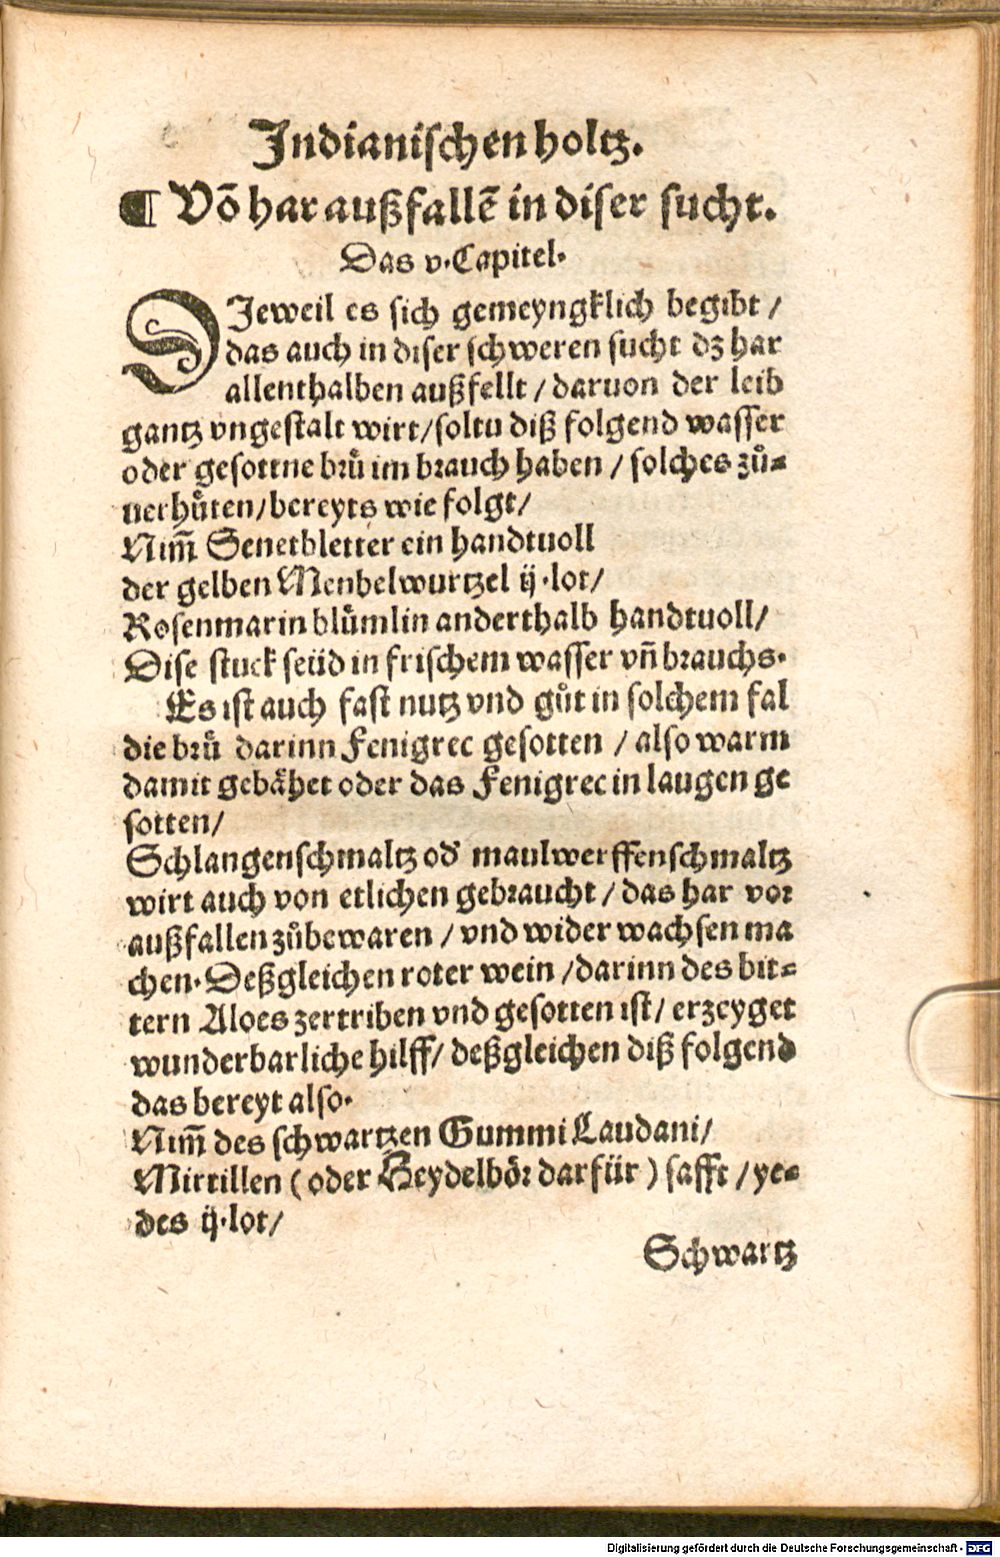 Indianischen holtz.
¶ Võ har außfallẽ in diser sucht.
Das v. Capitel.
DJeweil es sich gemeyngklich begibt /
das auch in diser schweren sucht dz har
allenthalben außfellt / daruon der leib
gantz vngestalt wirt / soltu diß folgend wasser
oder gesottne brů im brauch haben / solches zů=
uerhůten / bereyts wie folgt /
Nim̃ Senetbletter ein handtuoll
der gelben Menbelwurtzel ij. lot /
Rosenmarin blůmlin anderthalb handtuoll /
Dise stuck seüd in frischem wasser vñ brauchs.
Es ist auch fast nutz vnd gůt in solchem fal
die brů darinn Fenigrec gesotten / also warm
damit gebåhet oder das Fenigrec in laugen ge
sotten /
Schlangenschmaltz od' maulwerffenschmaltz
wirt auch von etlichen gebraucht / das har vor
außfallen zůbewaren / vnd wider wachsen ma
chen. Deßgleichen roter wein / darinn des bit=
tern Aloes zertriben vnd gesotten ist / erzeyget
wunderbarliche hilff / deßgleichen diß folgend
das bereyt also.
Nim̃ des schwartzen Gummi Laudani /
Mirtillen ( oder Heydelbör darfür ) safft / ye=
des ij. lot /
Schwartz
Digitalisierung gefördert durch die Deutsche Forschungsgemeinschaft - DFG